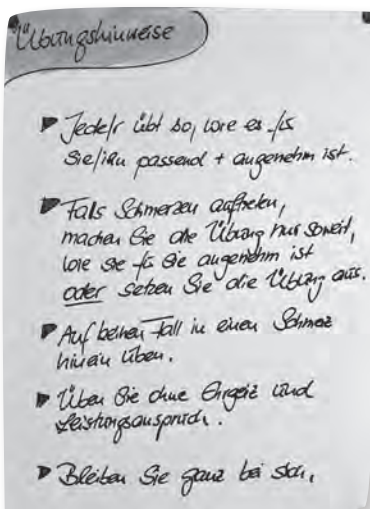 Übungshinweise
▶ Jede/r übt so, wie es für
Sie/ihn passend + angenehm ist.
▶ Falls Schmerzen auftreten,
machen Sie die Übung nur soweit,
wie sie für Sie angenehm ist
oder setzen Sie die Übung aus.
▶ Auf keinen Fall in einen Schmerz
hinein üben.
▶ Üben Sie ohne Ehrgeiz und
Leistungsanspruch.
▶ Bleiben Sie ganz bei sich,